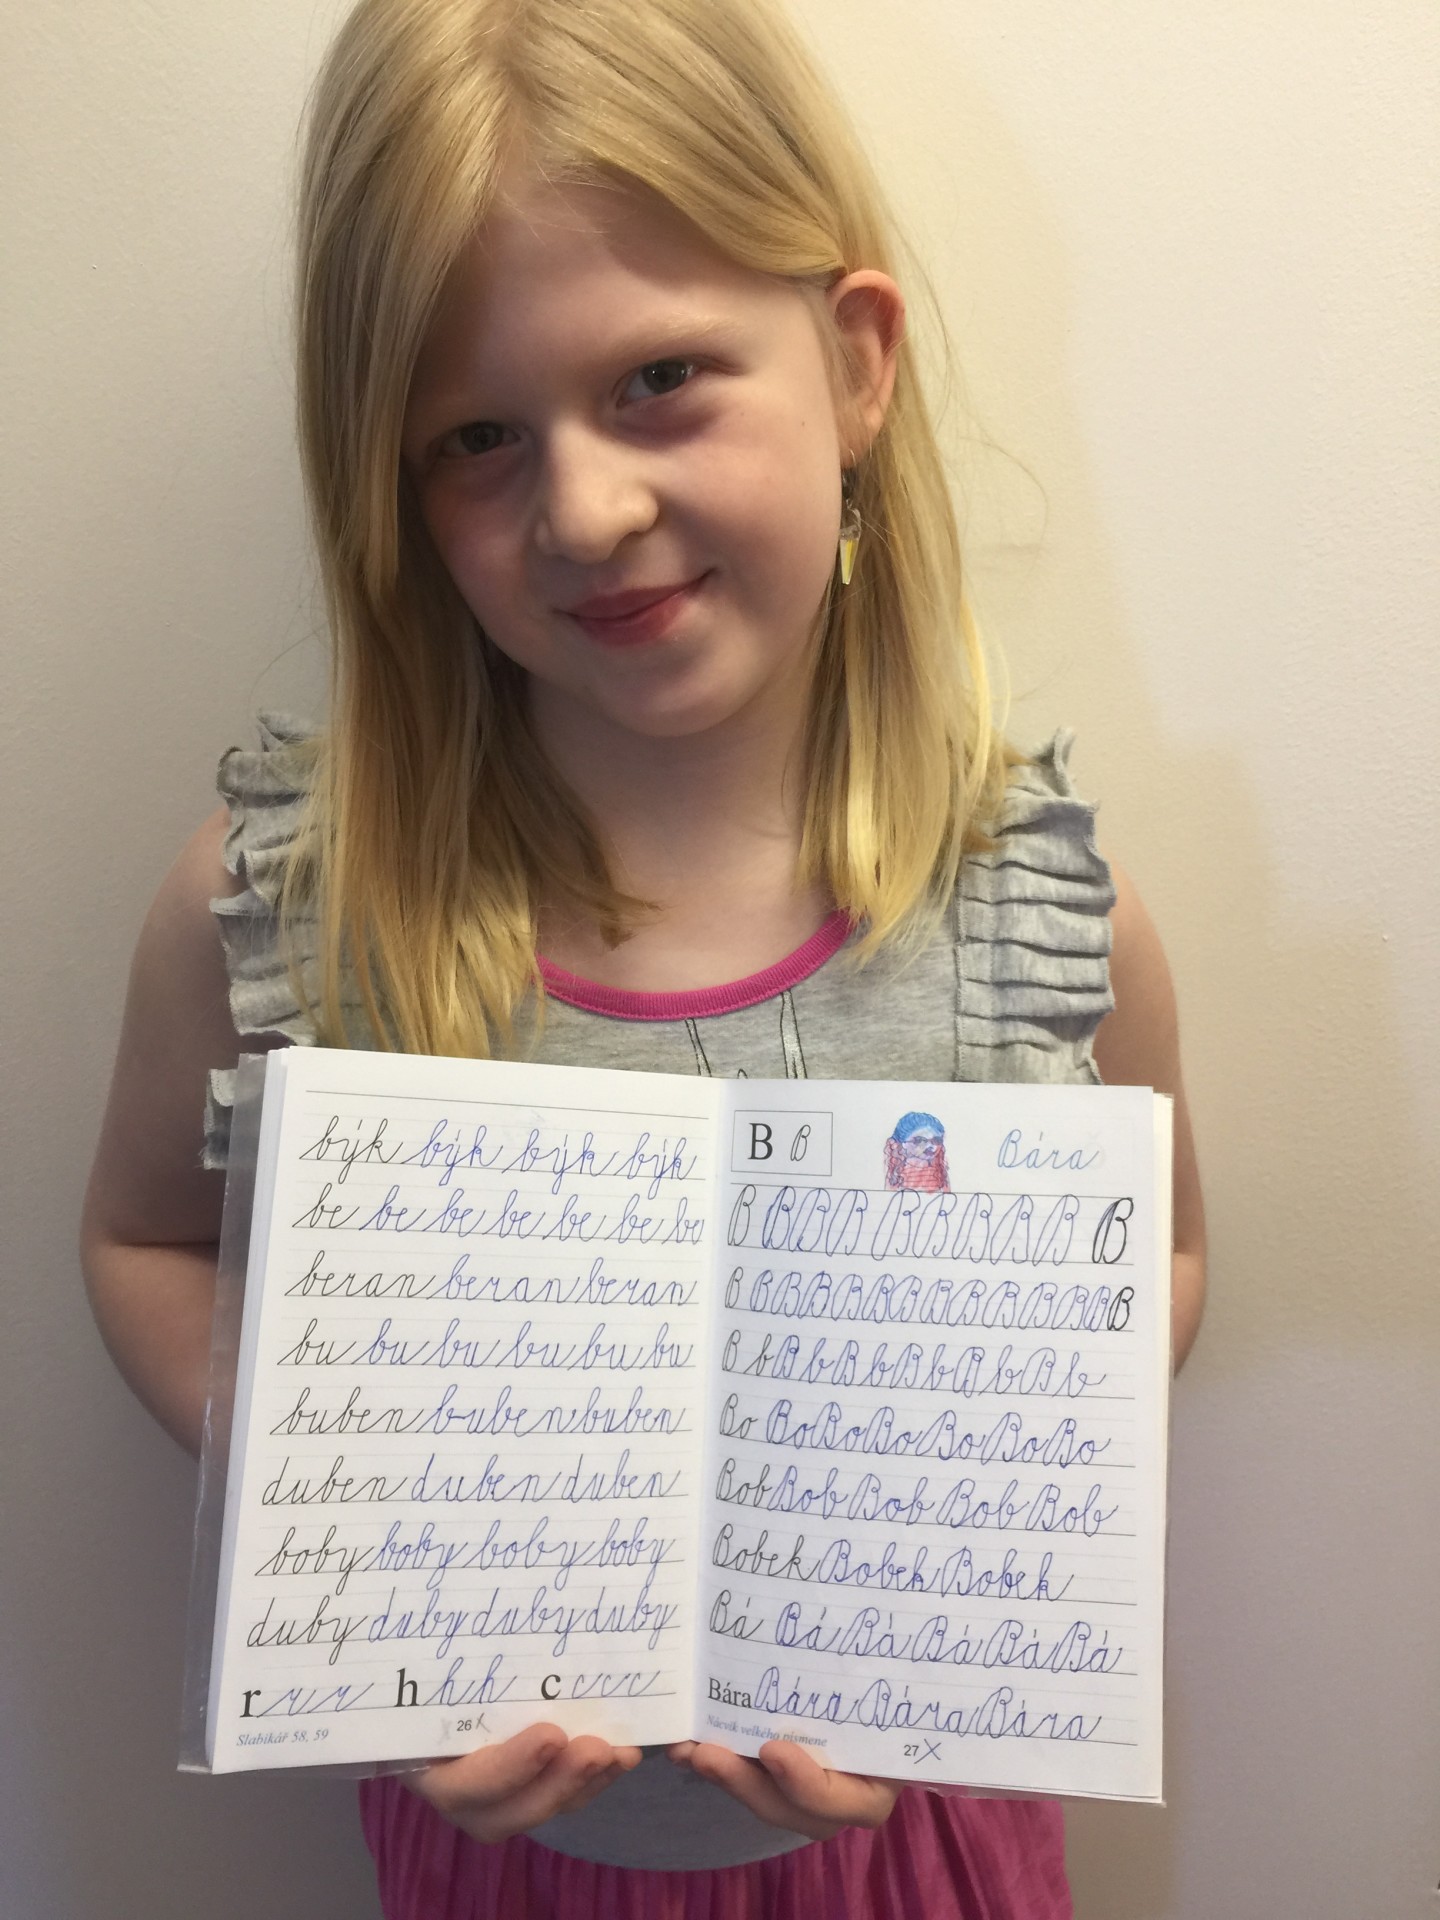 býk býk býk býk
be be be be be be be
beran beran beran
bu bu bu bu bu bu
buben buben buben
duben duben duben
boby boby boby boby
duby duby duby duby
r r r r h h h c c c c
Slabikář 58, 59
26
B B Bára
B B B B B B B B B B
B B B B B B B B B B B B B B
B b B b B b B b B b B b
Bo Bo Bo Bo Bo Bo Bo
Bob Bob Bob Bob Bob
Bobek Bobek Bobek
Bá Bá Bá Bá Bá Bá
Bára Bára Bára Bára
Nácvik velkého písmene
27